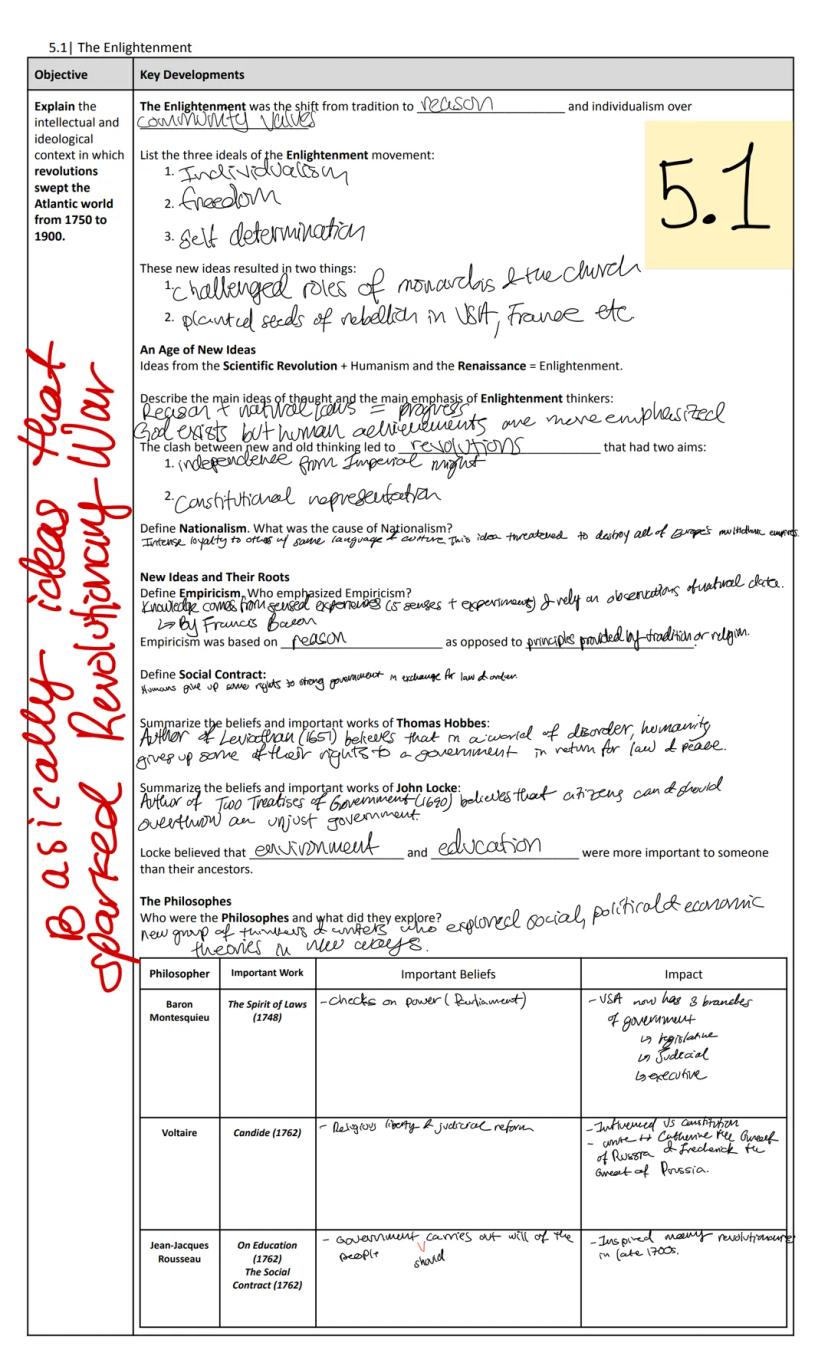 5.1| The Enlightenment
Objective
Key Developments
Explain the
intellectual and
ideological
context in which
revolutions
swept the
Atlantic world
from 1750 to
1900.
Basically ideas that
sparked Revolutionary War
The Enlightenment was the shift from tradition to reason and individualism over
community values
5.1
List the three ideals of the Enlightenment movement:
1. Individualism
2. freedom
3. Self determination
These new ideas resulted in two things:
1. challenged roles of monarchs & the church
2. planted seeds of rebellion in USA, France etc
An Age of New Ideas
Ideas from the Scientific Revolution + Humanism and the Renaissance = Enlightenment.
Describe the main ideas of thought and the main emphasis of Enlightenment thinkers:
Reason + natural laws = progress
God exists but human achievements are more emphasized
The clash between new and old thinking led to revolutions that had two aims:
1. independence from Imperial might
2. Constitutional representation
Define Nationalism. What was the cause of Nationalism?
Intense loyalty to others w/ same language & culture. This idea threatened to destroy all of Europe's multiethnic empires.
New Ideas and Their Roots
Define Empiricism. Who emphasized Empiricism?
Knowledge comes from sensed experiences (5 senses + experiments) & rely on observations of natural data.
↳ By Francis Bacon
Empiricism was based on reason as opposed to principles provided by tradition or religion.
Define Social Contract:
Humans give up some rights to strong government in exchange for law & order.
Summarize the beliefs and important works of Thomas Hobbes:
Author of Leviathan (1651) believes that in a world of disorder, humanity
gives up some of their rights to a government in return for law & peace.
Summarize the beliefs and important works of John Locke:
Author of Two Treatises of Government (1690) believes that citizens can & should
overthrow an unjust government.
Locke believed that environment and education were more important to someone
than their ancestors.
The Philosophes
Who were the Philosophes and what did they explore?
New group of thinkers & writers who explored social, political & economic
theories in new ways.
Philosopher
Important Work
Important Beliefs
Impact
Baron
Montesquieu
The Spirit of Laws
(1748)
- Checks on power (Parliament)
- USA now has 3 branches
of government
↳ legislative
↳ Judicial
↳ executive
Voltaire
Candide (1762)
- Religious liberty & judicial reform
- Influenced US constitution
- wrote to Catherine the Great
of Russia & Frederick the
Great of Prussia.
Jean-Jacques
Rousseau
On Education
(1762)
The Social
Contract (1762)
- Government should carries out will of the
people
- Inspired many revolutionaries
in late 1700s.